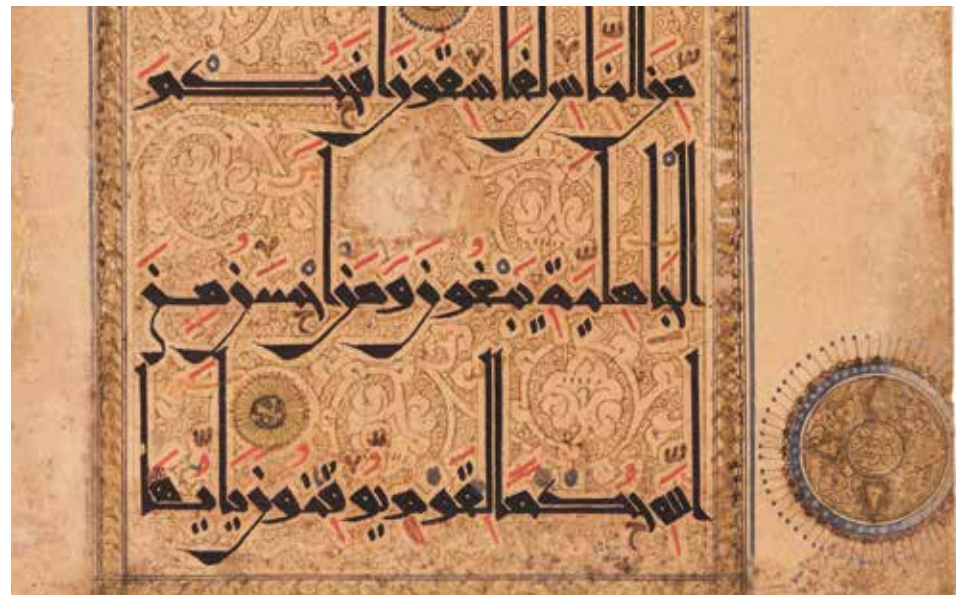 مِنَ النَّاسِ لَفَاسِقُونَ اَفَحُكْمَ
الْجَاهِلِيَّةِ يَبْغُونَ وَمَنْ اَحْسَنُ مِنَ
اللّٰهِ حُكْمًا لِقَوْمٍ يُوقِنُونَ يَايُّهَا